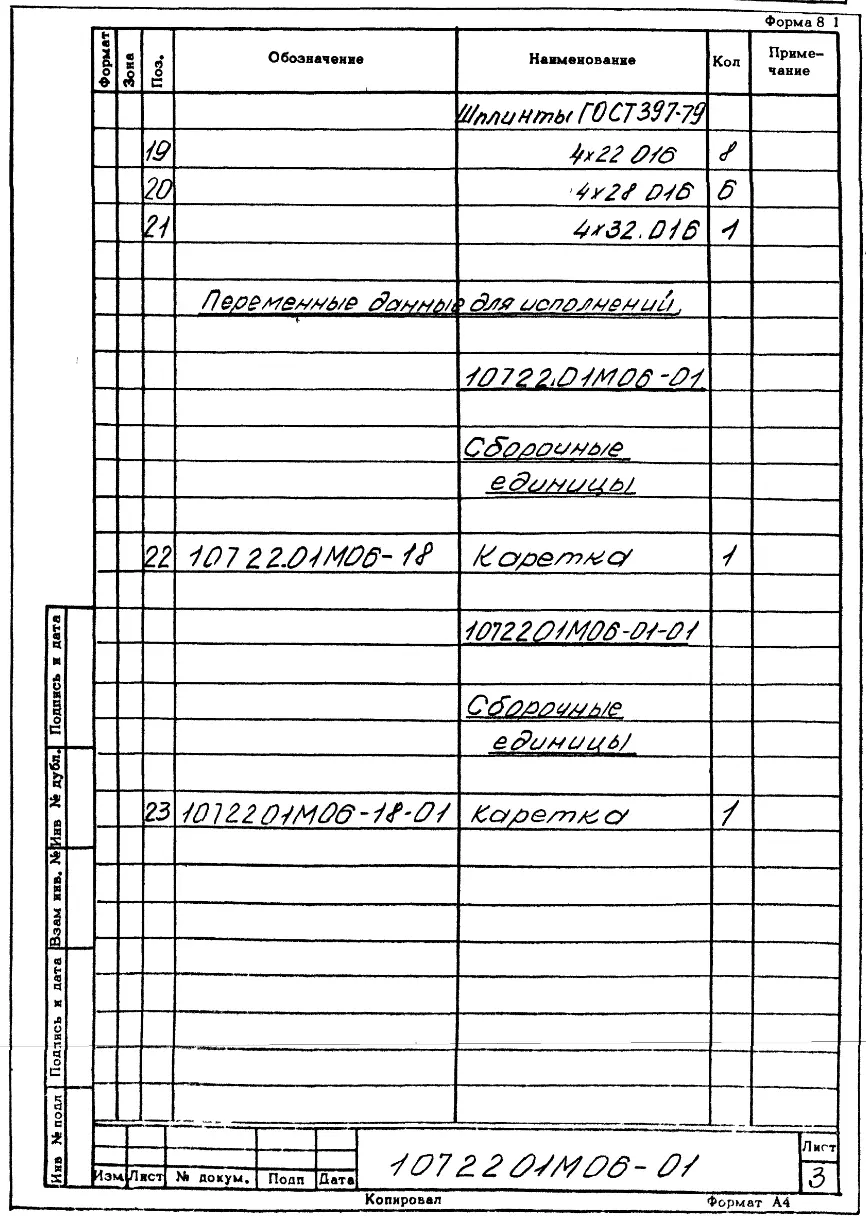 Форма 8 1
Формат Зона Поз. Обозначение Наименование Кол Приме-
чание
Шплинты ГОСТ397-79
19 4х22 016 8
20 4х28 016 6
21 4х32.016 1
Переменные данные для исполнений
10722.01М06-01
Сборочные
единицы
22 10722.01М06-18 Каретка 1
1072201М06-01-01
Сборочные
единицы
23 1072201М06-18-01 Каретка 1
Подпись и дата
Инв № дубл.
Взам инв. №
Подпись и дата
Инв № подл
Изм Лист № докум. Подп Дата
1072201М06-01
Лист
3
Копировал Формат А4